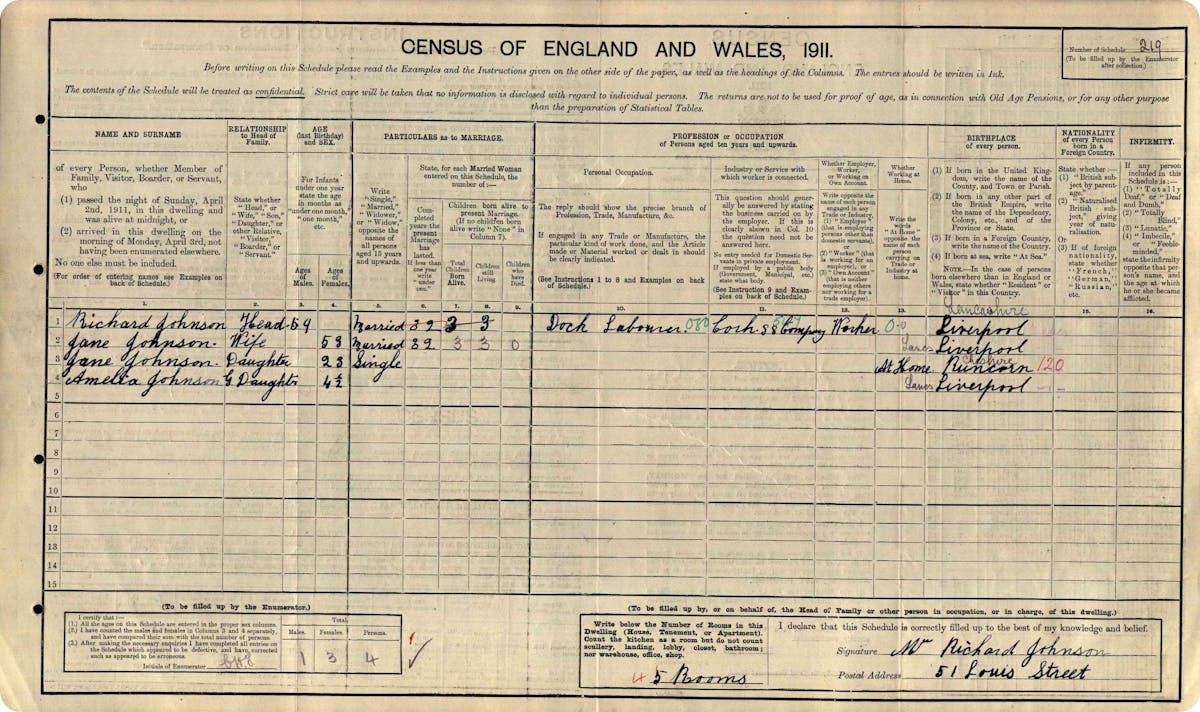 CENSUS OF ENGLAND AND WALES, 1911.
Number of Schedule 219
(To be filled up by the Enumerator
after collection.)
Before writing on this Schedule please read the Examples and the Instructions given on the other side of the paper, as well as the headings of the Columns. The entries should be written in Ink.
The contents of the Schedule will be treated as confidential. Strict care will be taken that no information is disclosed with regard to individual persons. The returns are not to be used for proof of age, as in connection with Old Age Pensions, or for any other purpose
than the preparation of Statistical Tables.
NAME AND SURNAME
of every Person, whether Member of
Family, Visitor, Boarder, or Servant,
who
(1) passed the night of Sunday, April
2nd, 1911, in this dwelling and
was alive at midnight, or
(2) arrived in this dwelling on the
morning of Monday, April 3rd, not
having been enumerated elsewhere.
No one else must be included.
(For order of entering names see Examples on
back of Schedule.)
RELATIONSHIP
to Head of
Family.
State whether
"Head," or
"Wife," "Son,"
"Daughter," or
other Relative,
"Visitor,"
"Boarder," or
"Servant."
AGE
(last Birthday)
and SEX.
For Infants
under one year
state the age
in months as
"under one month,"
"one month,"
etc.
Ages
of
Males.
Ages
of
Females.
PARTICULARS as to MARRIAGE.
Write
"Single,"
"Married,"
"Widower,"
or "Widow,"
opposite the
names of
all persons
aged 15 years
and upwards.
State, for each Married Woman
entered on this Schedule, the
number of:—
Com-
pleted
years the
present
Marriage
has
lasted.
If less than
one year
write
"under
one."
Children born alive to
present Marriage.
(If no children born
alive write "None" in
Column 7).
Total
Children
Born
Alive.
Children
still
Living
Children
who
have
Died.
PROFESSION or OCCUPATION
of Persons aged ten years and upwards.
Personal Occupation.
The reply should show the precise branch of
Profession, Trade, Manufacture, &c.
If engaged in any Trade or Manufacture, the
particular kind of work done, and the Article
made or Material worked or dealt in should
be clearly indicated.
(See Instructions 1 to 8 and Examples on back
of Schedule.)
Industry or Service with
which worker is connected.
This question should gener-
ally be answered by stating
the business carried on by
the employer. If this is
clearly shown in Col. 10
the question need not be
answered here.
No entry needed for Domestic Ser-
vants in private employment.
If employed by a public body
(Government, Municipal, etc.)
state what body.
(See Instruction 9 and Exam-
ples on back of Schedule.)
Whether Employer,
Worker,
or Working on
Own Account.
Write opposite the
name of each person
engaged in any
Trade or Industry,
(1) "Employer"
(that is employing
persons other than
domestic servants),
or
(2) "Worker" (that
is working for an
employer), or
(3) "Own Account"
(that is neither
employing others
nor working for a
trade employer).
Whether
Working at
Home.
Write the
words
"At Home"
opposite the
name of each
person
carrying on
Trade or
Industry at
home.
BIRTHPLACE
of every person.
(1) If born in the United King-
dom, write the name of the
County, and Town or Parish.
(2) If born in any other part of
the British Empire, write
the name of the Dependency,
Colony, etc., and of the
Province or State.
(3) If born in a Foreign Country,
write the name of the Country.
(4) If born at sea, write "At Sea."
NOTE.—In the case of persons
born elsewhere than in England or
Wales, state whether "Resident" or
"Visitor" in this Country.
NATIONALITY
of every Person
born in a
Foreign Country.
State whether:—
(1) "British sub-
ject by parent-
age,"
(2) "Naturalised
British sub-
ject," giving
year of natu-
ralisation.
Or
(3) If of foreign
nationality,
state whether
"French,"
"German,"
"Russian,"
etc.
INFIRMITY.
If any person
included in this
Schedule is:—
(1) "Totally
Deaf," or "Deaf
and Dumb,"
(2) "Totally
Blind,"
(3) "Lunatic,"
(4) "Imbecile,"
or "Feeble-
minded,"
state the infirmity
opposite that per-
son's name, and
the age at which
he or she became
afflicted.
1. 2. 3. 4. 5. 6. 7. 8. 9. 10. 11. 12. 13. 14. 15. 16.
Lancashire
1 Richard Johnson Head 59 Married 32 3 3 Dock Labourer 080 Company Worker 0-0 Liverpool
2 Jane Johnson Wife 53 Married 32 3 3 0 Lancs Liverpool
Cheshire
3 Jane Johnson Daughter 23 Single At Home Runcorn 120
4 Amelia Johnson G Daughter 4½ Lancs Liverpool
5
6
7
8
9
10
11
12
13
14
15
(To be filled up by the Enumerator.)
I certify that:—
(1.) All the ages on this Schedule are entered in the proper sex columns.
(2.) I have counted the males and females in Columns 3 and 4 separately,
and have compared their sum with the total number of persons.
(3.) After making the necessary enquiries I have completed all entries on
the Schedule which appeared to be defective, and have corrected
such as appeared to be erroneous.
Initials of Enumerator
Total.
Males. Females. Persons.
1 3 4
(To be filled up by, or on behalf of, the Head of Family or other person in occupation, or in charge, of this dwelling.)
Write below the Number of Rooms in this
Dwelling (House, Tenement, or Apartment).
Count the kitchen as a room but do not count
scullery, landing, lobby, closet, bathroom;
nor warehouse, office, shop.
4 5 Rooms
I declare that this Schedule is correctly filled up to the best of my knowledge and belief.
Signature Mr Richard Johnson
Postal Address 51 Louis Street